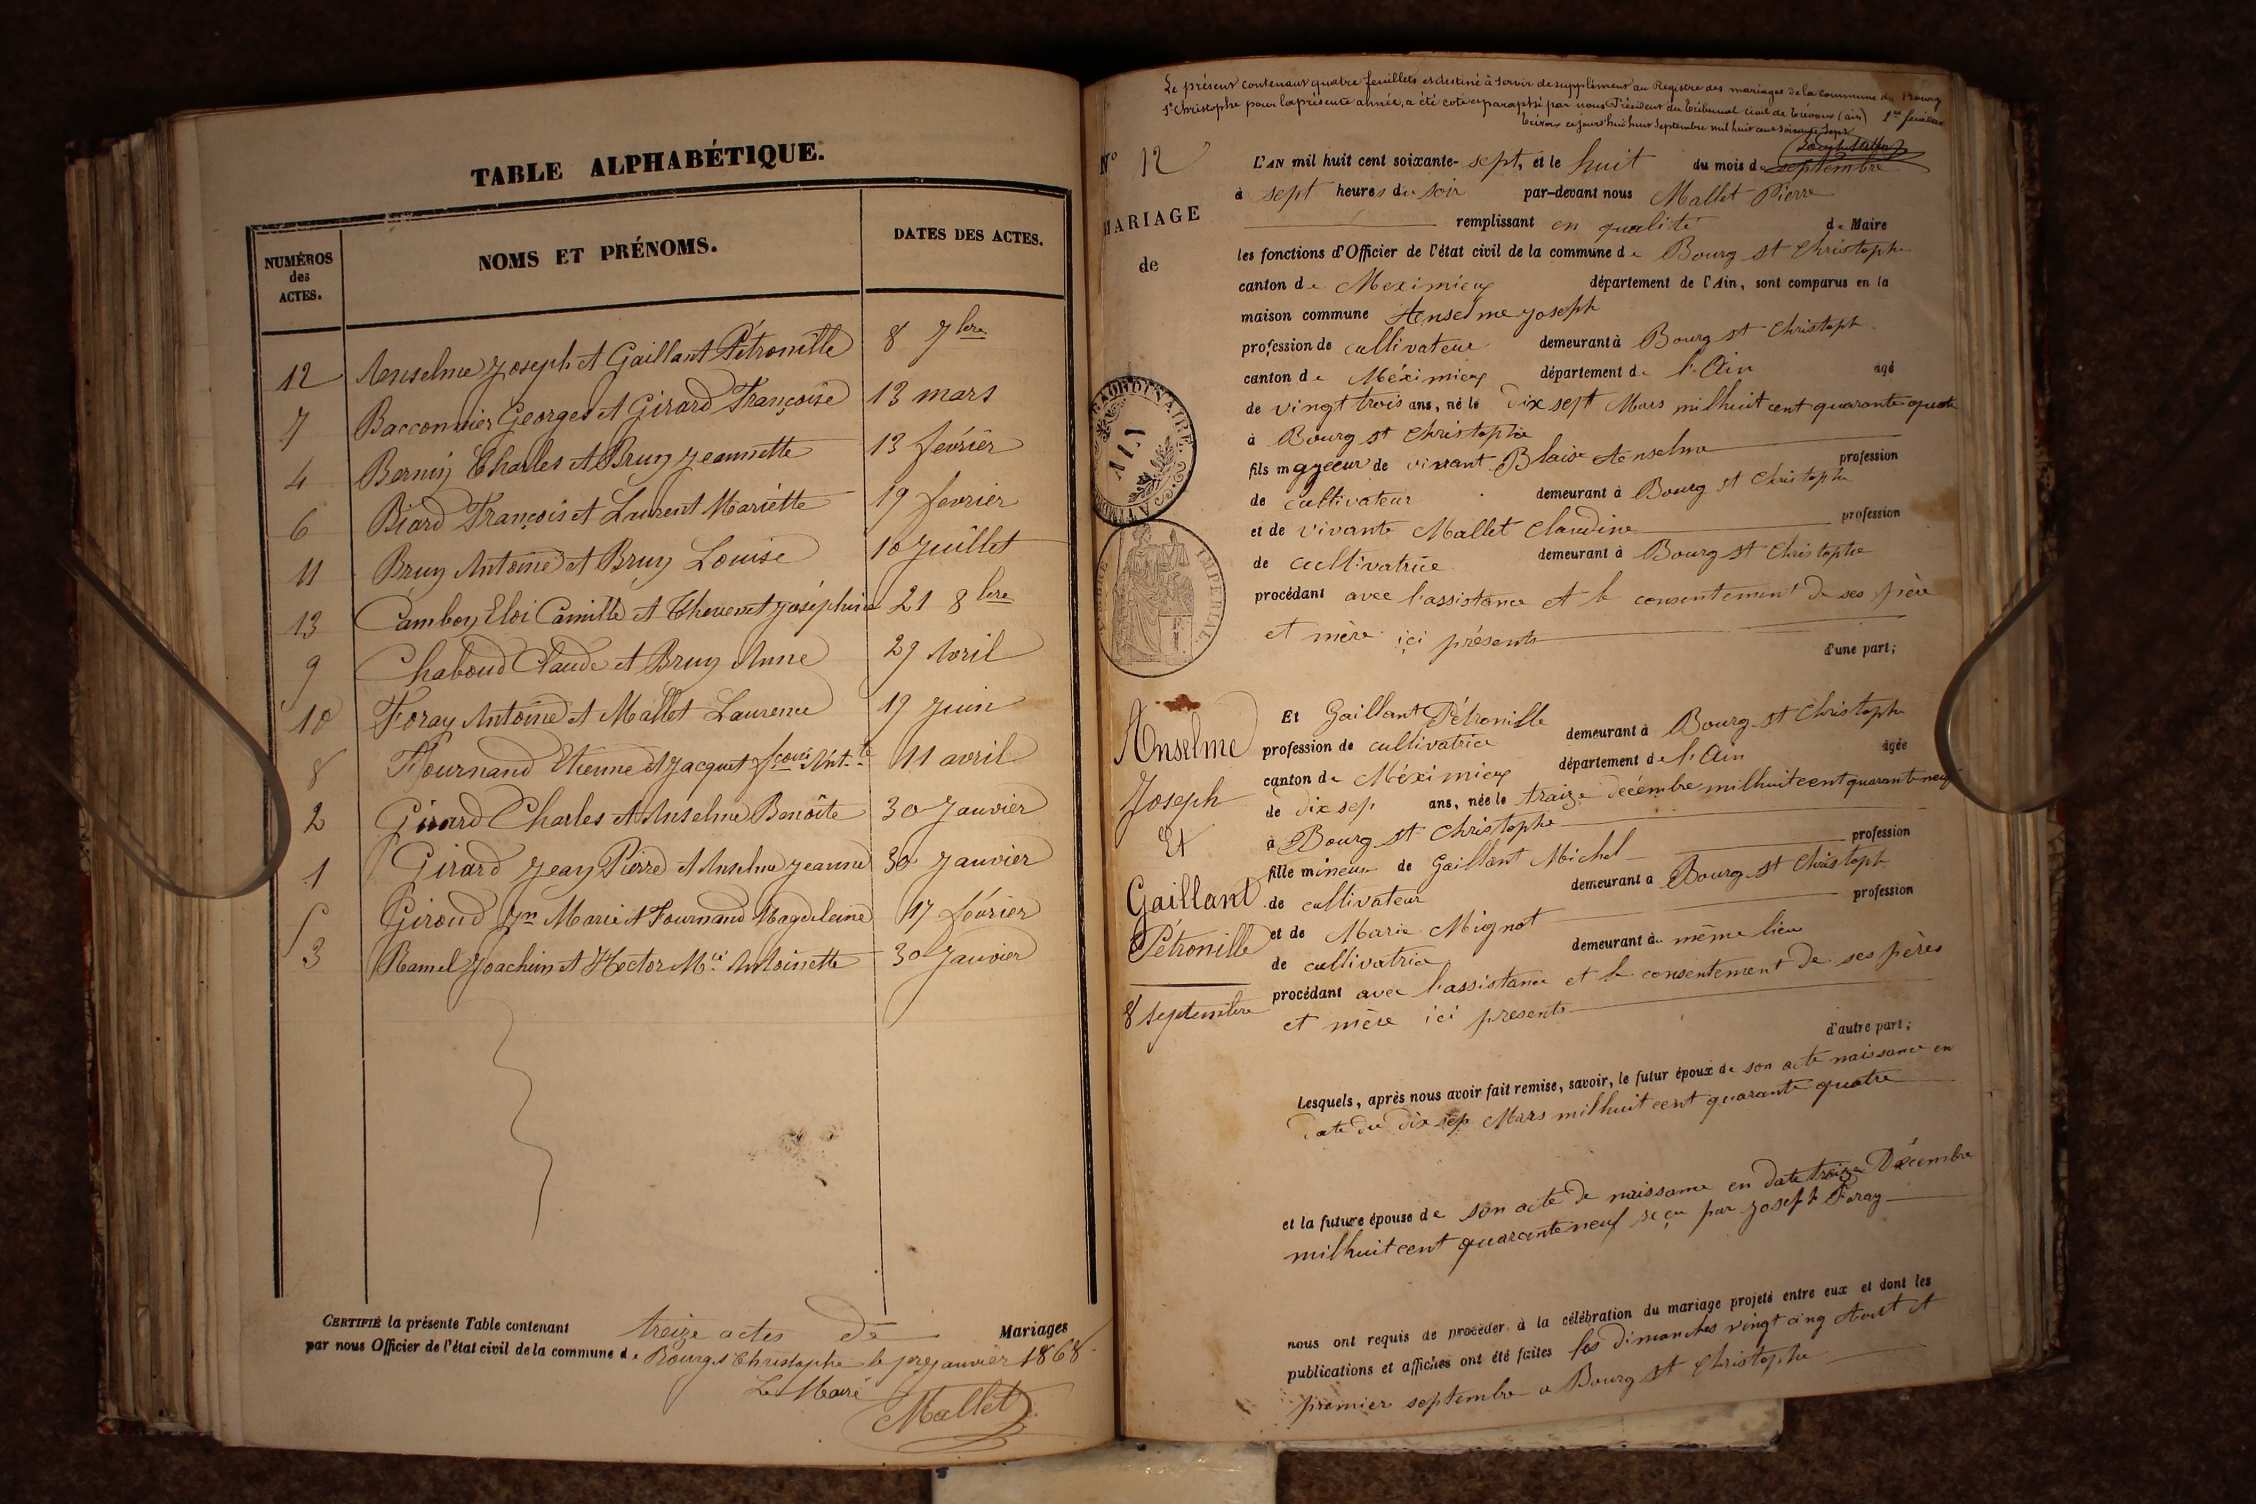 TABLE ALPHABÉTIQUE.
NUMÉROS des ACTES.
NOMS ET PRÉNOMS.
DATES DES ACTES.
12 Anselme Joseph et Gaillant Pétronille 8 7bre
7 Bacconnier Georges et Girard Françoise 13 mars
4 Bernin Charles et Bruy Jeannette 13 février
6 Biard François et Laurent Mariette 19 fevrier
11 Bruy Antoine et Bruy Louise 10 Juillet
13 Camboy Eloi Camille et Thevenet Joséphine 21 8bre
9 Chaboud Claude et Bruy Anne 29 Avril
10 Foray Antoine et Mallet Laurence 19 Juin
8 Fournand Etienne et Jacquet fcoise Antte 11 avril
2 Girard Charles et Anselme Benoîte 30 Janvier
1 Girard Jean Pierre et Anselme Jeanne 30 Janvier
5 Giroud Jn Marie et Fournand Magdeleine 17 février
3 Ramel Joachim et Hector Mie Antoinette 30 Janvier
CERTIFIÉ la présente Table contenant treize actes de Mariages
par nous Officier de l'état civil de la commune de Bourg St Christophe le pr janvier 1868.
Le Maire
Mallet
Le présent contenant quatre feuillets est destiné à servir de supplément au Registre des mariages de la commune du Bourg
St Christophe pour la présente année, a été coté et paraphé par nous Président du Tribunal civil de Trévoux (ain) 1er feuillet
Trévoux ce jourd'hui huit Septembre mil huit cent soixante Sept
No 12
L'AN mil huit cent soixante-sept, et le huit du mois de septembre
à sept heures du soir par-devant nous Mallet Pierre
remplissant en qualité de Maire
MARIAGE
de
les fonctions d'Officier de l'état civil de la commune de Bourg St Christophe
canton de Meximieux département de l'Ain, sont comparus en la
maison commune Anselme Joseph
profession de cultivateur demeurant à Bourg St Christophe
canton de Méximieux département de l'Ain âgé
de vingt trois ans, né le dix sept Mars mil huit cent quarante quatre
à Bourg St Christophe
fils mageeur de vivant Blaise Anselme profession
de cultivateur demeurant à Bourg St Christophe
et de vivante Mallet Claudine profession
de cultivatrice demeurant à Bourg St Christophe
procédant avec l'assistance et le consentement de ses père
et mère ici présents
d'une part;
AIN
TIMBRE IMPÉRIAL
Anselme
Joseph
Et
Gaillant
Pétronille
8 septembre
Et Gaillant Pétronille
profession de cultivatrice demeurant à Bourg St Christophe
canton de Méximieux département de l'Ain âgée
de dix sep ans, née le traize décembre mil huit cent quarante neuf
à Bourg St Christophe
fille mineur de Gaillant Michel profession
de cultivateur demeurant à Bourg St Christophe
et de Marie Mignot profession
de cultivatrice demeurant à même lieu
procédant avec l'assistance et le consentement de ses pères
et mère ici presents
d'autre part;
Lesquels, après nous avoir fait remise, savoir, le futur époux de son acte naissance en
date du dix sep Mars mil huit cent quarante quatre
et la future épouse de son acte de naissance en date traize Décembre
mil huit cent quarante neuf reçu par Joseph Foray
nous ont requis de procéder à la célébration du mariage projeté entre eux et dont les
publications et affiches ont été faites les dimanches vingt cinq Aout et
premier septembre a Bourg St Christophe